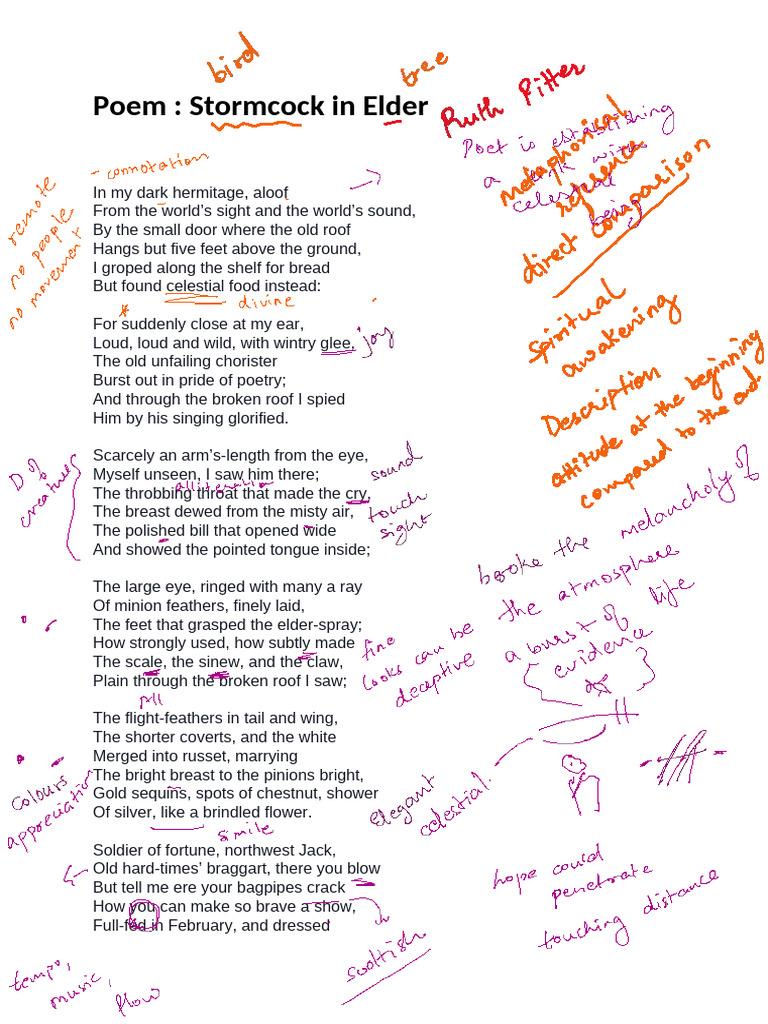 bird
tree
Poem : Stormcock in Elder
Ruth Pitter
Poet is establishing
a link with
celestial
being
metaphorical
reference
direct comparison
- connotation
remote
no people
no movement
In my dark hermitage, aloof
From the world's sight and the world's sound,
By the small door where the old roof
Hangs but five feet above the ground,
I groped along the shelf for bread
But found celestial food instead:
divine
Spiritual
awakening
For suddenly close at my ear,
Loud, loud and wild, with wintry glee,
joy
The old unfailing chorister
Burst out in pride of poetry;
And through the broken roof I spied
Him by his singing glorified.
Description
attitude at the beginning
compared to the end.
D of
creatures
Scarcely an arm's-length from the eye,
Myself unseen, I saw him there;
alliteration
The throbbing throat that made the cry,
The breast dewed from the misty air,
The polished bill that opened wide
And showed the pointed tongue inside;
sound
touch
sight
broke the melancholy of
the atmosphere
a burst of life
evidence
The large eye, ringed with many a ray
Of minion feathers, finely laid,
The feet that grasped the elder-spray;
How strongly used, how subtly made
The scale, the sinew, and the claw,
Plain through the broken roof I saw;
fine
looks can be
deceptive
All
The flight-feathers in tail and wing,
The shorter coverts, and the white
Merged into russet, marrying
The bright breast to the pinions bright,
Gold sequins, spots of chestnut, shower
Of silver, like a brindled flower.
Colours
appreciation
simile
Elegant
celestial.
Soldier of fortune, northwest Jack,
Old hard-times' braggart, there you blow
But tell me ere your bagpipes crack
How you can make so brave a show,
Full-fed in February, and dressed
hope could
penetrate
touching distance
scottish
tempo,
music,
flow